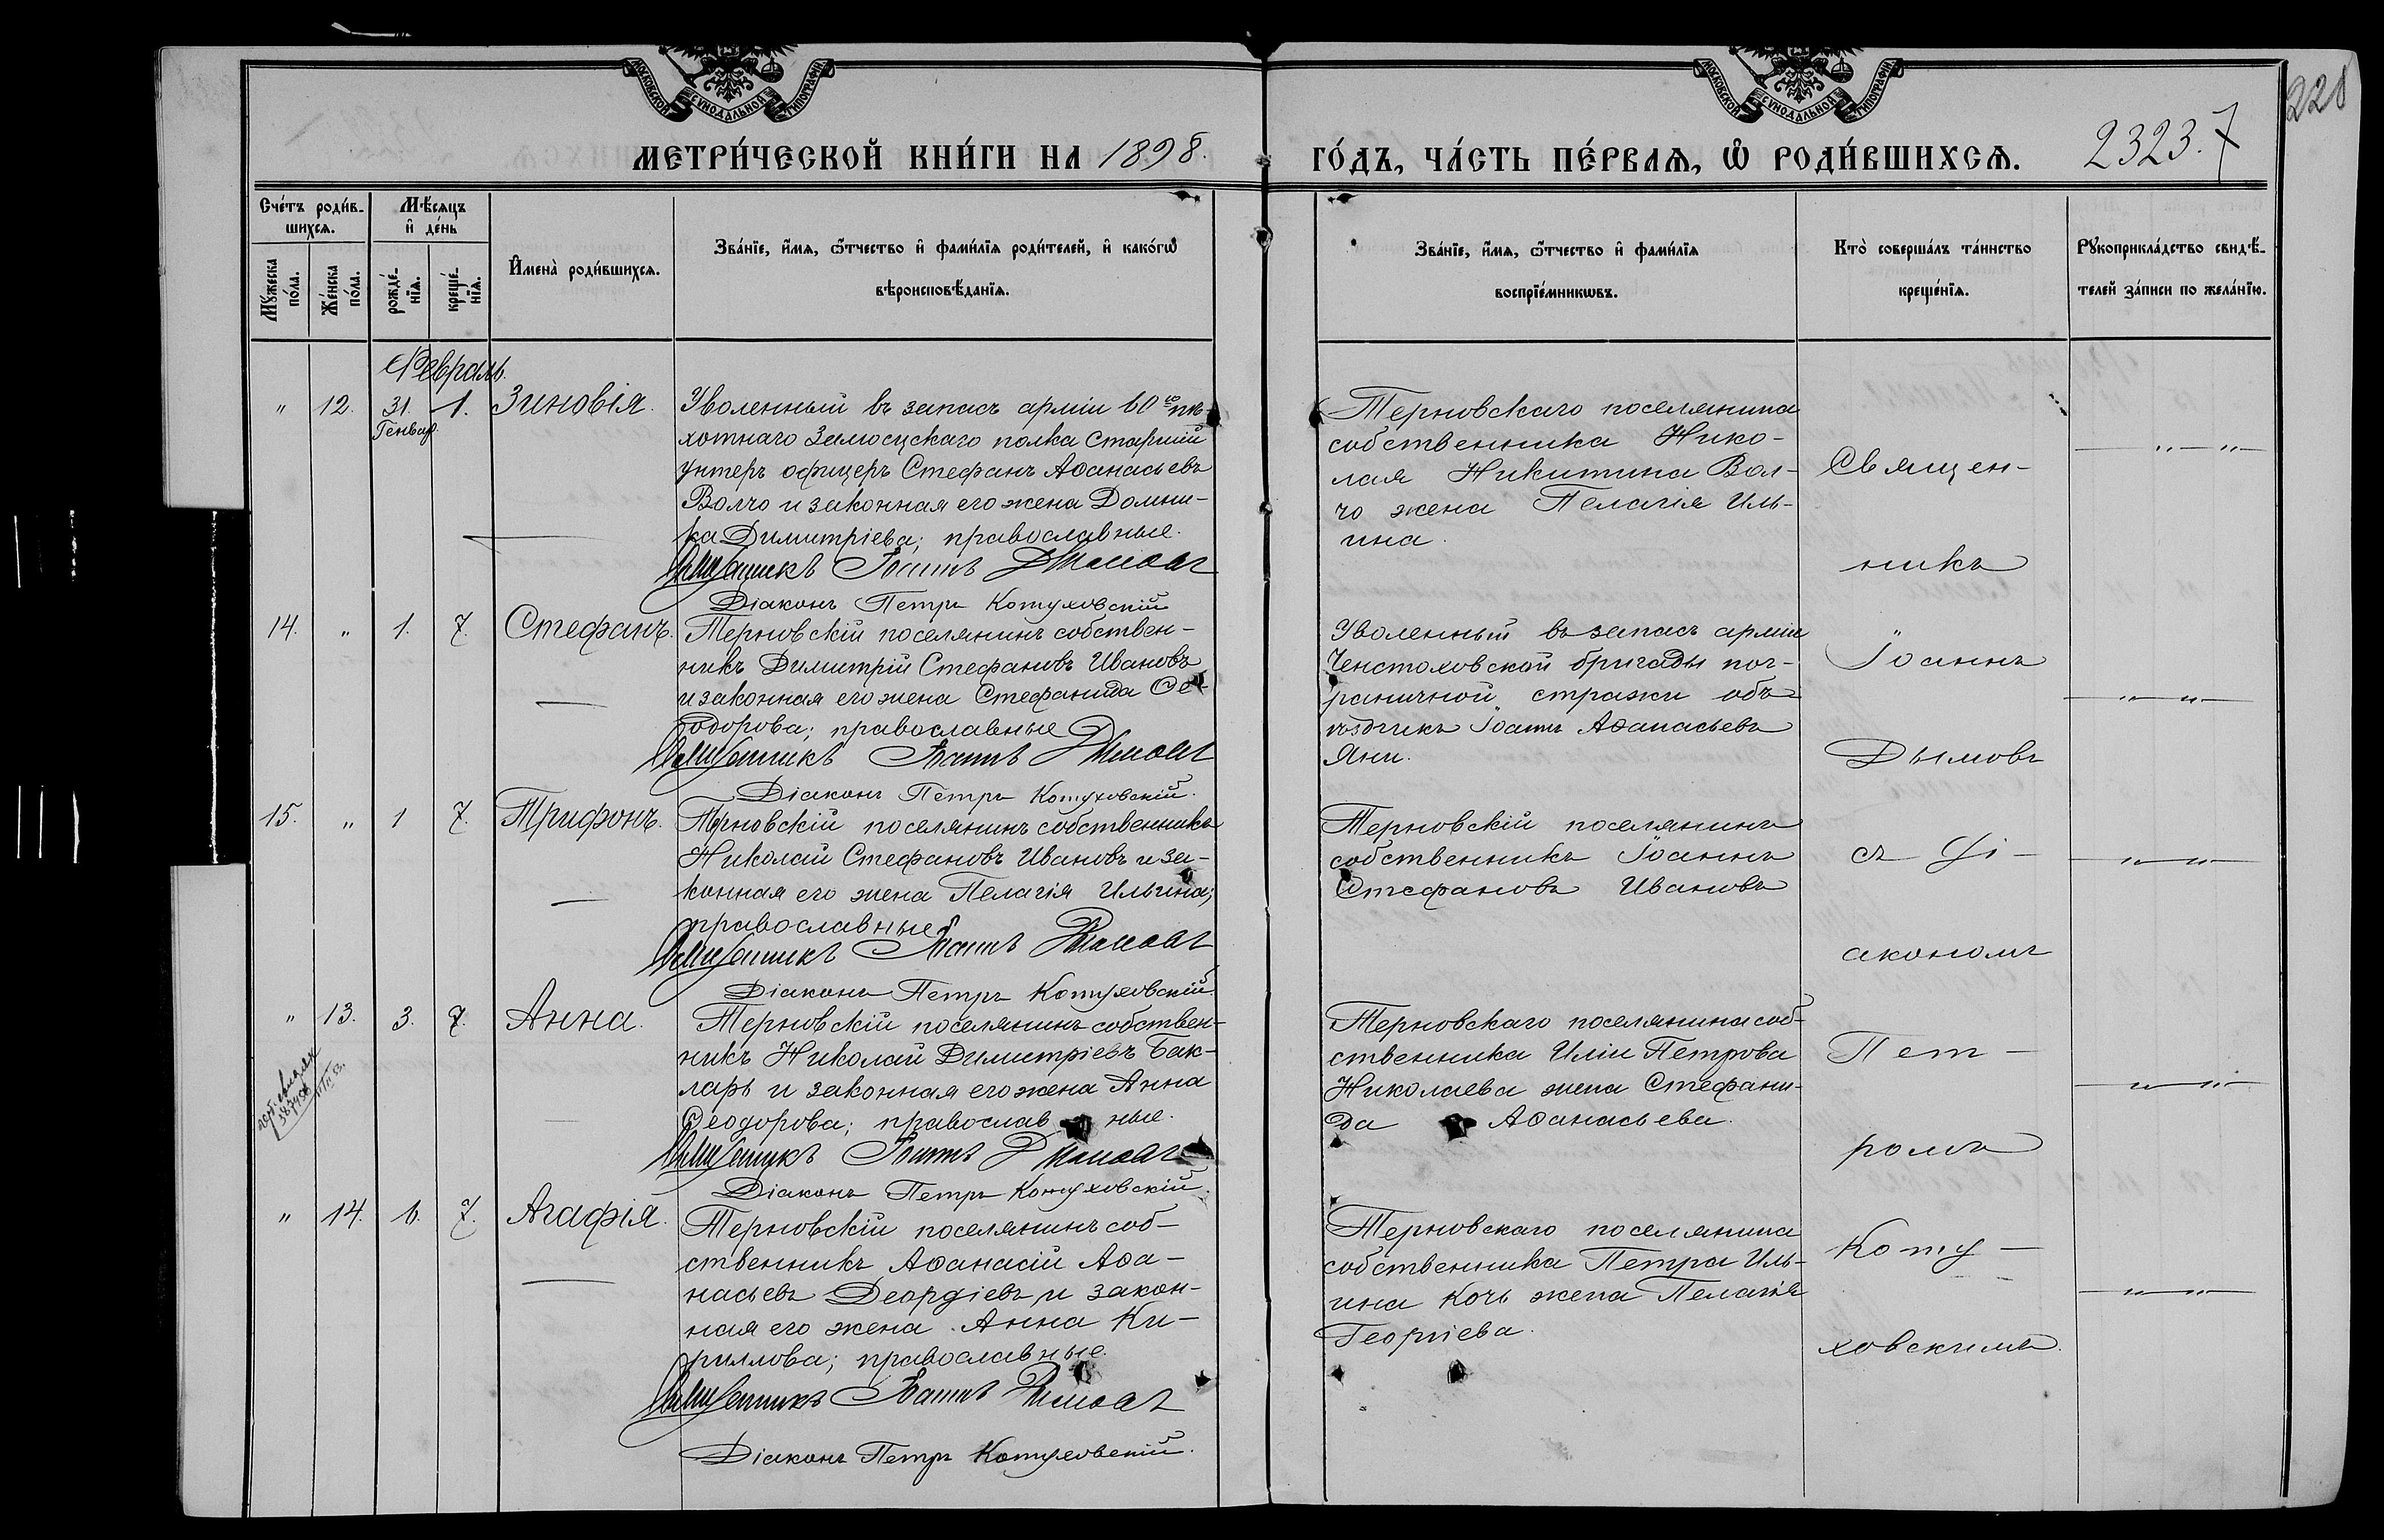 МОСКОВСКОЙ СУНОДАЛЬНОЙ ТИПОГРАФІИ
МОСКОВСКОЙ СУНОДАЛЬНОЙ ТИПОГРАФІИ
228
МЕТРИ́ЧЕСКОЙ КНИ́ГИ НА 1898.
ГО́ДЪ, ЧА́СТЬ ПЕ́РВАѦ, Ѡ҆ РОДИ́ВШИХСѦ.
2323.7
Сче́тъ роди́в-
шихсѧ.
Мѣ́сѧцъ
и҆ де́нь
Мꙋ́жеска
по́ла.
Же́нска
по́ла.
рожде́-
нїѧ.
креще́-
нїѧ.
И҆мена̀ роди́вшихсѧ.
Зва́нїе, и҆́мѧ, ѻ҆́тчество и҆ фами́лїѧ роди́телей, и҆ како́гѡ
вѣроисповѣ́данїѧ.
Зва́нїе, и҆́мѧ, ѻ҆́тчество и҆ фами́лїѧ
воспрїе́мникѡвъ.
Кто̀ соверша́лъ та́инство
креще́нїѧ.
Рꙋкоприкла́дство свидѣ́-
телей за́писи по жела́нїю.
Февраль.
" 12. 31. 1. Зиновія.
Генвар.
Уволенный въ запасъ арміи 60го пѣ-
хотнаго Замосцскаго полка старшій
унтеръ офицеръ Стефанъ Аѳанасьевъ
Волчо и законная его жена Домни-
ка Димитріева; православные.
Священникъ Іоаннъ Дымовъ
Діаконъ Петръ Котуховскій
Терновскаго поселянина
собственника Нико-
лая Никитина Вол-
чо жена Пелагія Иль-
ина.
14. " 1. 7. Стефанъ.
Терновскій поселянинъ собствен-
никъ Димитрій Стефановъ Ивановъ
и законная его жена Стефанида Ѳе-
одорова; православные
Священникъ Іоаннъ Дымовъ
Діаконъ Петръ Котуховскій.
Уволенный въ запасъ арміи
Ченстоховской бригады пог-
раничной стражи объ-
ѣздчикъ Іоаннъ Аѳанасьевъ
Яни.
15. " 1 7. Трифонъ.
Терновскій поселянинъ собственникъ
Николай Стефановъ Ивановъ и за-
конная его жена Пелагія Ильина;
православные
Священникъ Іоаннъ Дымовъ
Діаконъ Петръ Котуховскій.
Терновскій поселянинъ
собственникъ Іоаннъ
Стефановъ Ивановъ
" 13. 3. 7. Анна.
Терновскій поселянинъ собствен-
никъ Николай Димитріевъ Бак-
ларь и законная его жена Анна
Ѳеодорова; православные.
Священникъ Іоаннъ Дымовъ
Діаконъ Петръ Котуховскій.
Терновскаго поселянина соб-
ственника Иліи Петрова
Николаева жена Стефани-
да Аѳанасьева.
" 14. 6. 7. Агафія.
Терновскій поселянинъ соб-
ственникъ Аѳанасій Аѳа-
насьевъ Деордіевъ и закон-
ная его жена Анна Ки-
риллова; православные.
Священникъ Іоаннъ Дымовъ
Діаконъ Петръ Котуховскій.
Терновскаго поселянина
собственника Петра Иль-
ина Кочь жена Пелагія
Георгіева.
Священ-
никъ
Іоаннъ
Дымовъ
съ Ді-
акономъ
Пет-
ромъ
Коту-
ховскимъ.